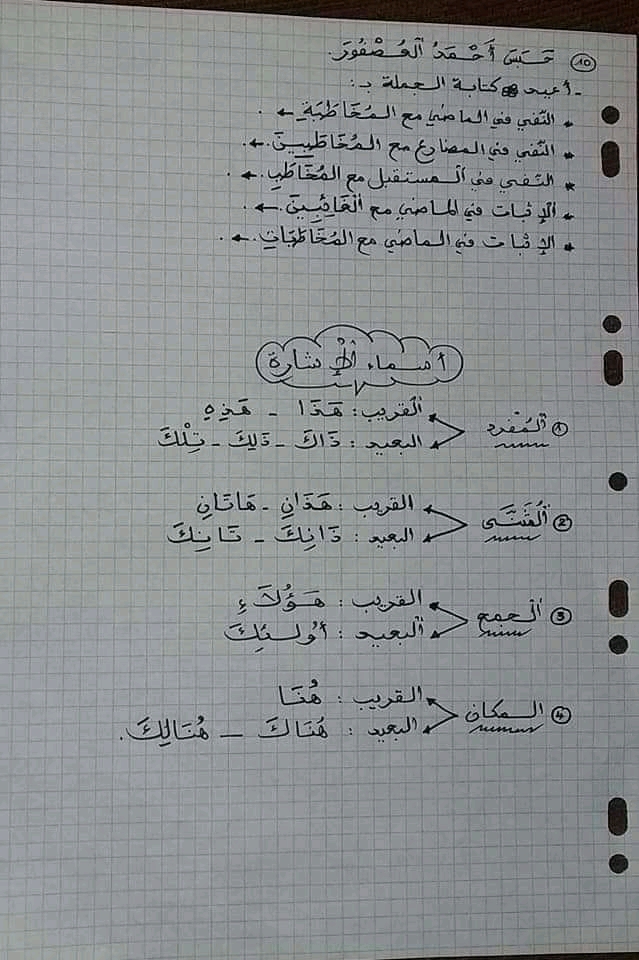 ⑩ حَبَسَ أَحْمَدُ الْعُصْفُورَ.
- أعيد كتابة الجملة بـ:
* النّفي في الماضي مع المُخَاطَبَةِ ←
* النّفي في المضارع مع المُخَاطَبِينَ. ←
* النّفي في المستقبل مع المُخَاطَبِ. ←
* الإثبات في الماضي مع الْغَائِبِينَ. ←
* الإثبات في الماضي مع المُخَاطَبَاتِ. ←
أسماء الْإشارة
① الْمُفرد القريب: هَذَا - هَذِهِ
البعيد: ذَاكَ - ذَلِكَ - تِلْكَ
② الْمُثَنَّى القريب: هَذَانِ - هَاتَانِ
البعيد: ذَانِكَ - تَانِكَ
③ الْجمع القريب: هَؤُلَاءِ
الْبعيد: أُولَئِكَ
④ المكان القريب: هُنَا
البعيد: هُنَاكَ - هُنَالِكَ.